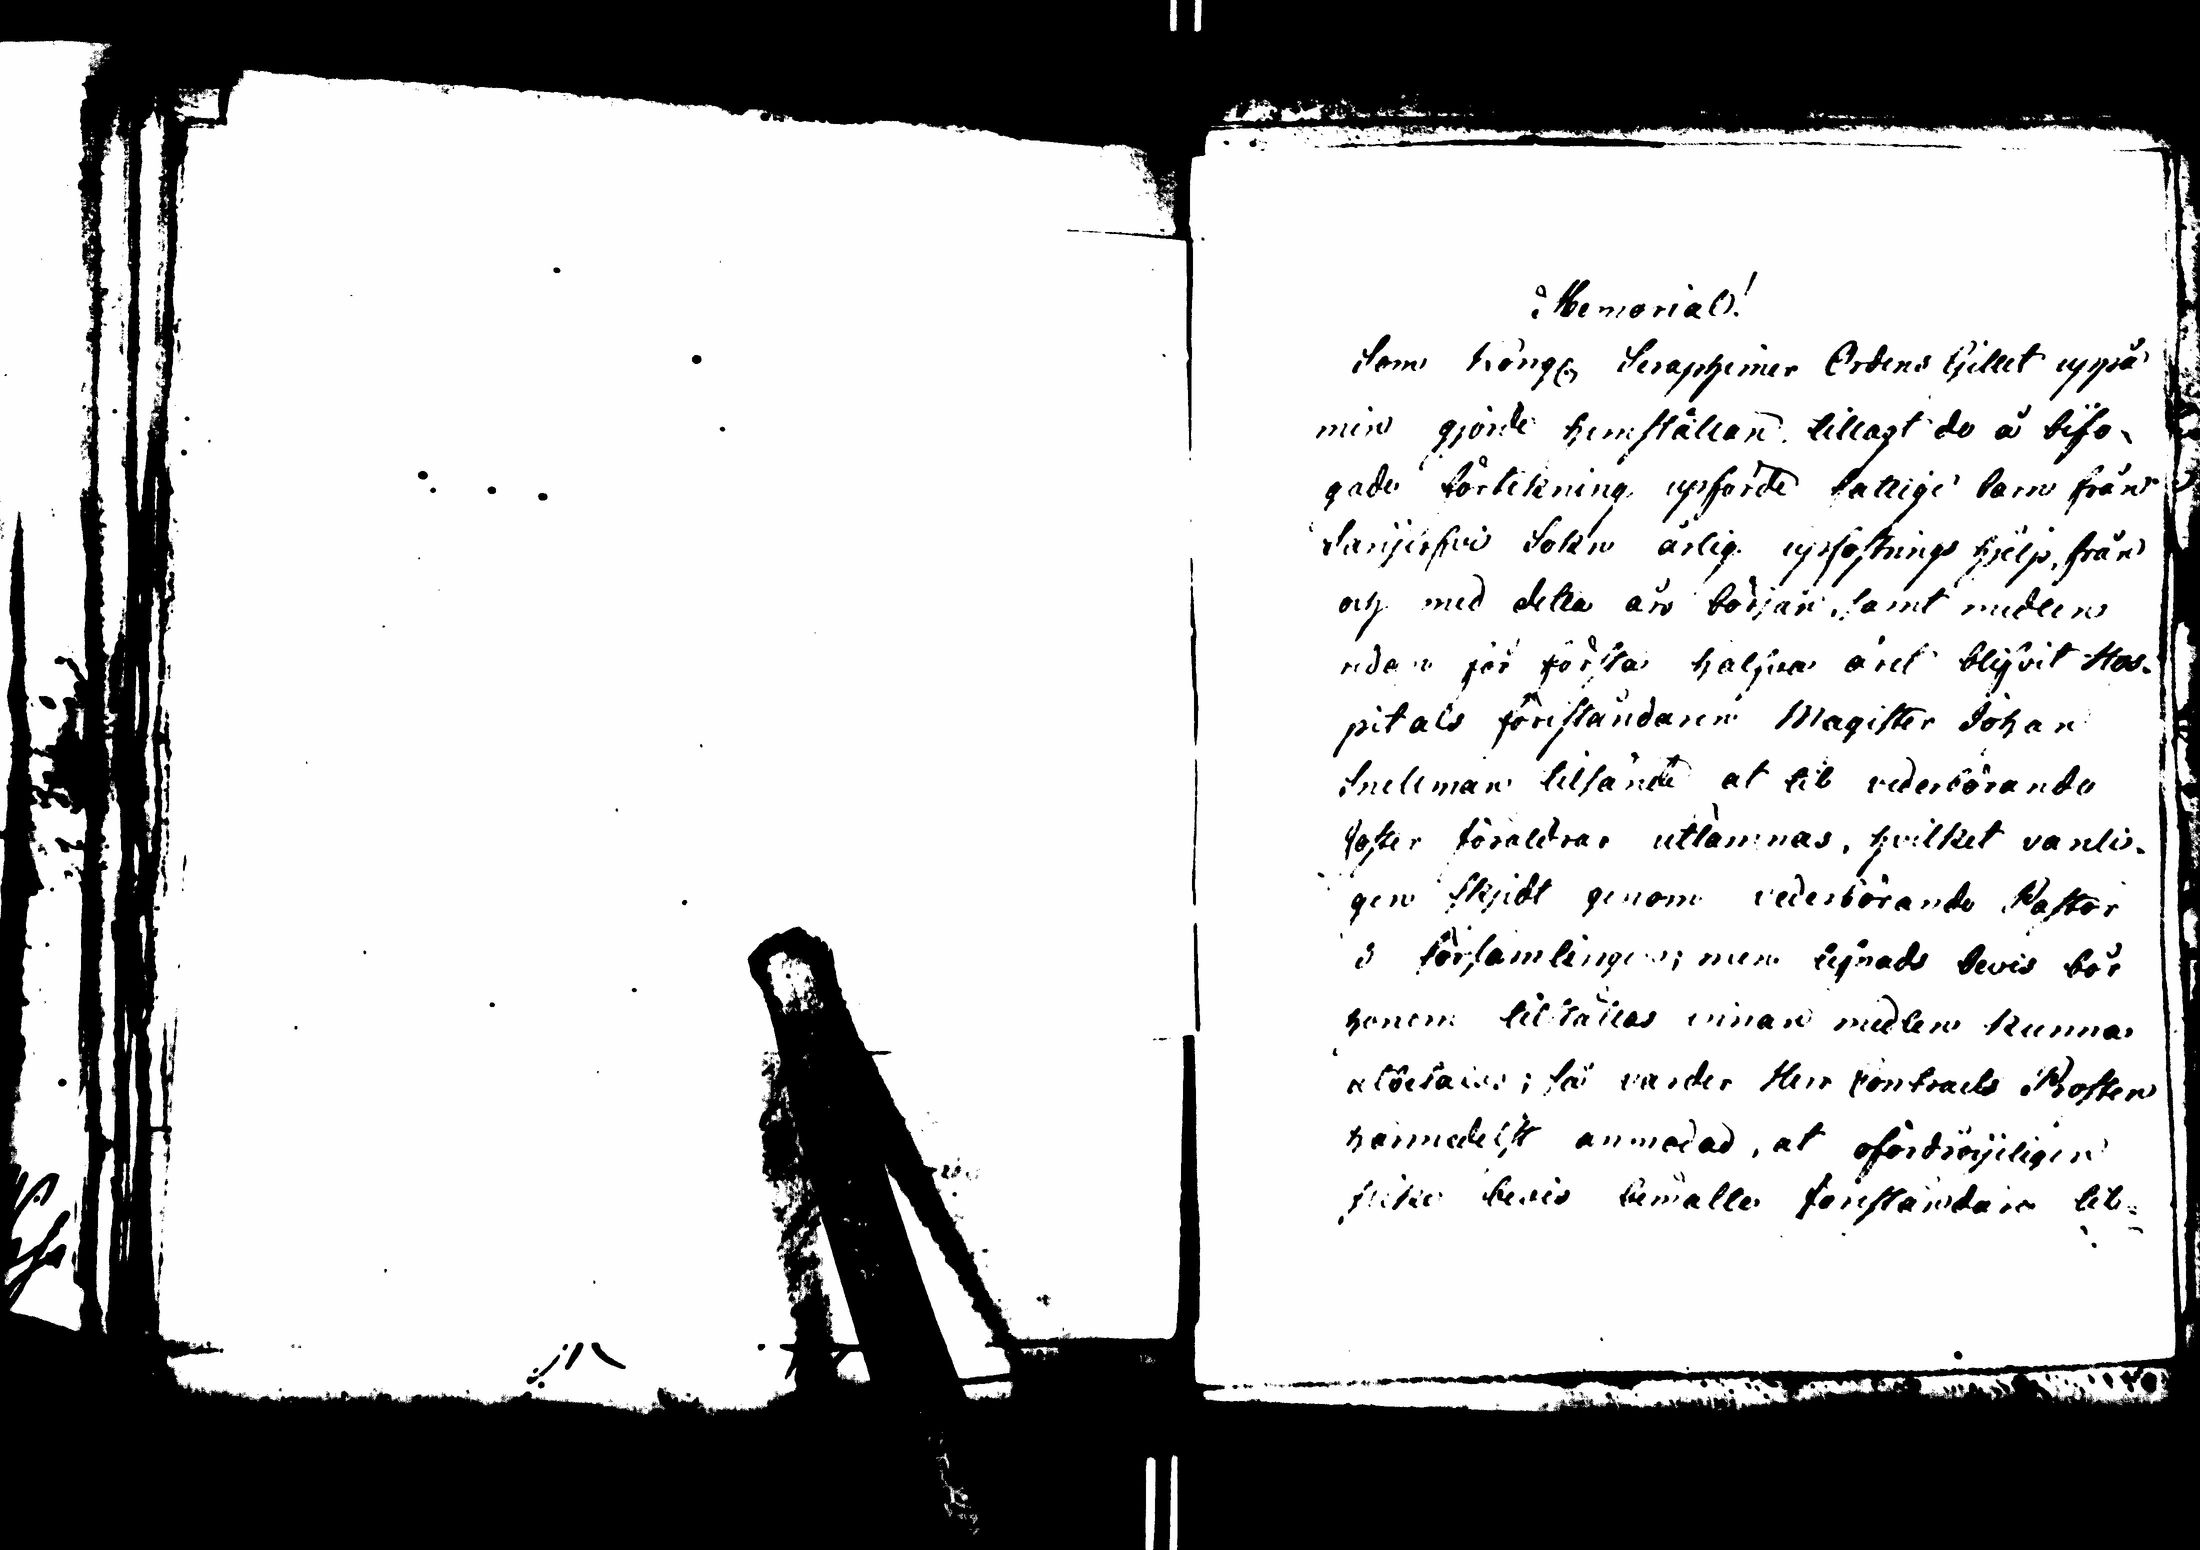 Memorial!
Som Kongl. Seraphimer Ordens Gillet uppå
min gjorde hemställan tillagt de å bifo-
gade förtekning upförde fattige barn från
Sarijerfvi Sokn årlig upfostrings hjelp, från
och med detta års början, samt medlen
redan för första halfva året blifvit Hos-
pitals föreståndaren Magister Johan
Snellman tilsände at til vederbörande
foster föräldrar utlämnas, hvilket vanli-
gen skjedt genom vederbörande Pastor
i församlingen; men lifnads bevis bör
honom tilställas innan medlen kunna
; så varder Herr Contracts Prosten
harmedelst anmodad, at ofördröijeligen
slike bevis bemälte föreståndare til-